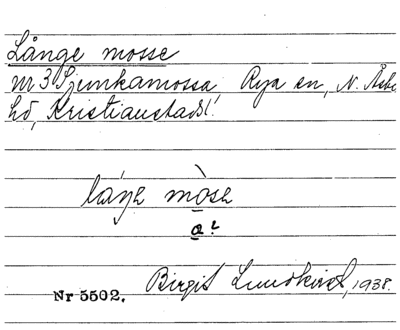 Långe mosse
nr 3 Sjunkamossa, Rya sn, N. Åsbo
hd, Kristianstads l.
låŋe mòse
a?
Nr 5502. Birgit Lundkvist, 1938.